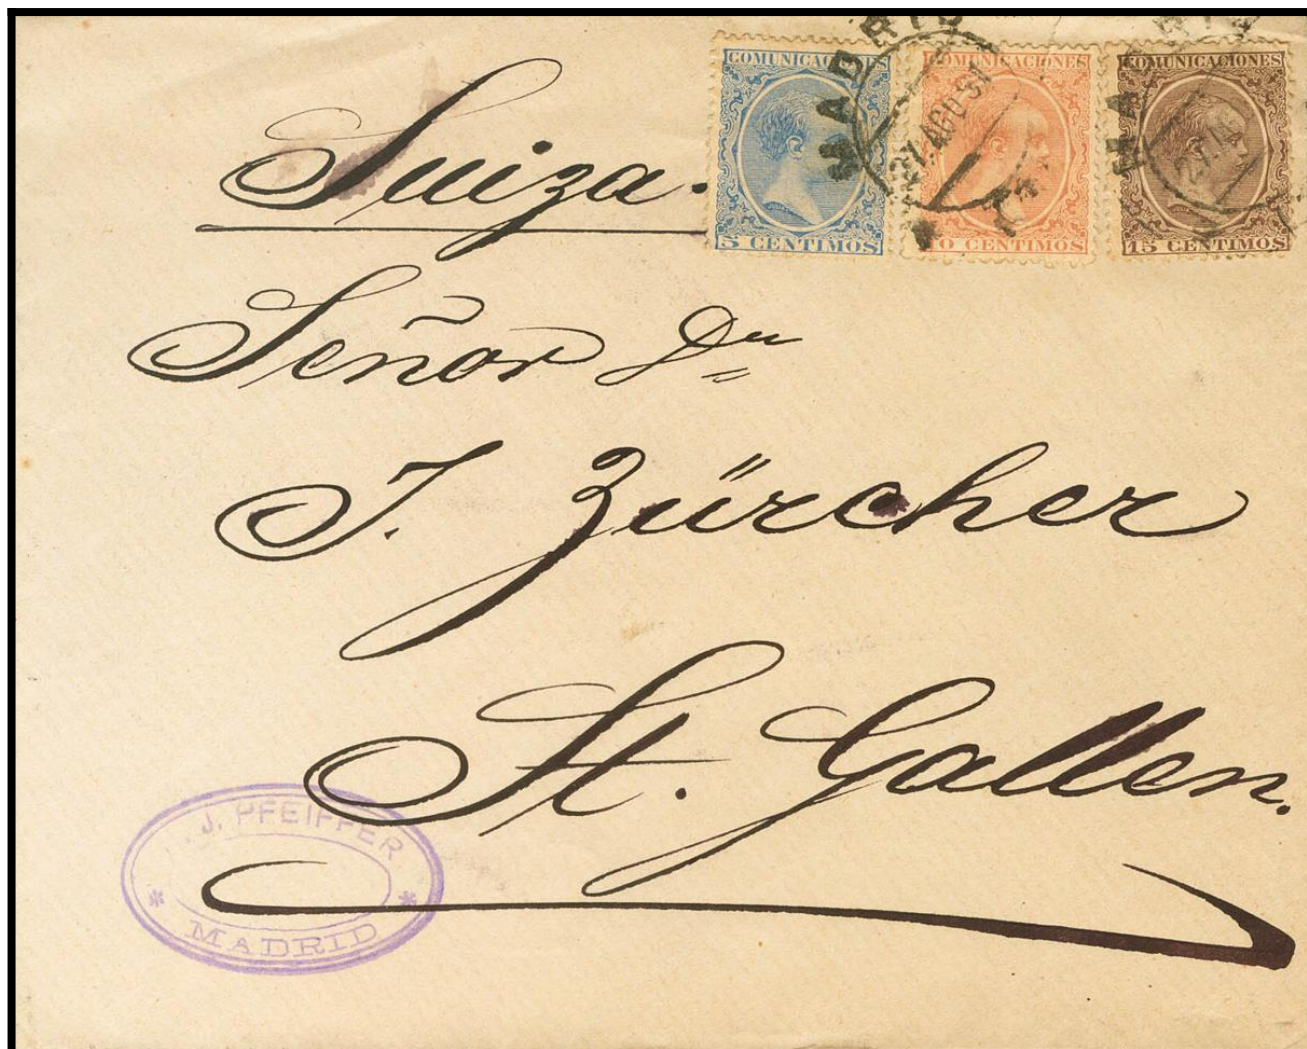 COMUNICACIONES
5 CENTIMOS
COMUNICACIONES
10 CENTIMOS
COMUNICACIONES
15 CENTIMOS
MADRID
21.AGO.91
MADRID
Suiza.
Señor Dn
J. Zürcher
St. Gallen.
J. PFEIFFER
* MADRID *